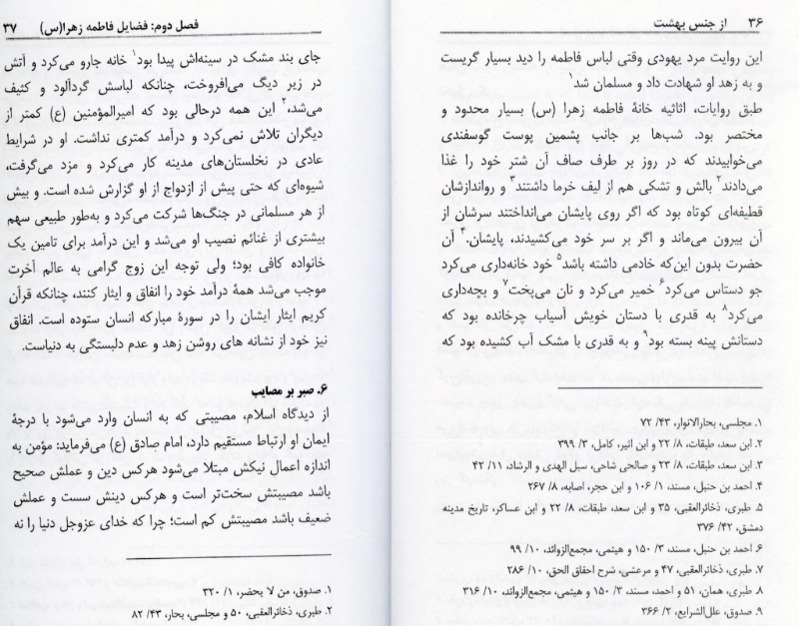 ۳۶ از جنس بهشت
این روایت مرد یهودی وقتی لباس فاطمه را دید بسیار گریست
و به زهد او شهادت داد و مسلمان شد۱
طبق روایات، اثاثیه خانهٔ فاطمه زهرا (س) بسیار محدود و
مختصر بود. شب‌ها بر جانب پشمین پوست گوسفندی
می‌خوابیدند که در روز بر طرف صاف آن شتر خود را غذا
می‌دادند۲ بالش و تشکی هم از لیف خرما داشتند۳ و رواندازشان
قطیفه‌ای کوتاه بود که اگر روی پایشان می‌انداختند سرشان از
آن بیرون می‌ماند و اگر بر سر خود می‌کشیدند، پایشان.۴ آن
حضرت بدون این‌که خادمی داشته باشد۵ خود خانه‌داری می‌کرد
جو دستاس می‌کرد۶ خمیر می‌کرد و نان می‌پخت۷ و بچه‌داری
می‌کرد۸ به قدری با دستان خویش آسیاب چرخانده بود که
دستانش پینه بسته بود۹ و به قدری با مشک آب کشیده بود که
۱. مجلسی، بحارالانوار، ۴۳/ ۷۲
۲. ابن سعد، طبقات، ۸/ ۲۲ و ابن اثیر، کامل، ۳/ ۳۹۹
۳. ابن سعد، طبقات، ۸/ ۲۳ و صالحی شاخی، سبل الهدی و الرشاد، ۱۱/ ۴۲
۴. احمد بن حنبل، مسند، ۱/ ۱۰۶ و ابن حجر، اصابه، ۸/ ۲۶۷
۵. طبری، ذخائرالعقبی، ۳۵ و ابن سعد، طبقات، ۸/ ۲۲ و ابن عساکر، تاریخ مدینه
دمشق، ۴۲/ ۳۷۶
۶. احمد بن حنبل، مسند، ۳/ ۱۵۰ و هیثمی، مجمع‌الزوائد، ۱۰/ ۹۹
۷. طبری، ذخائرالعقبی، ۴۷ و مرعشی، شرح احقاق الحق، ۱۰/ ۲۸۶
۸. طبری، همان، ۵۱ و احمد، مسند، ۳/ ۱۵۰ و هیثمی، مجمع‌الزوائد، ۱۰/ ۳۱۶
۹. صدوق، علل‌الشرایع، ۲/ ۳۶۶
فصل دوم: فضایل فاطمه زهرا(س) ۳۷
جای بند مشک در سینه‌اش پیدا بود۱ خانه جارو می‌کرد و آتش
در زیر دیگ می‌افروخت، چنانکه لباسش گردآلود و کثیف
می‌شد،۲ این همه درحالی بود که امیرالمؤمنین (ع) کمتر از
دیگران تلاش نمی‌کرد و درآمد کمتری نداشت. او در شرایط
عادی در نخلستان‌های مدینه کار می‌کرد و مزد می‌گرفت،
شیوه‌ای که حتی پیش از ازدواج از او گزارش شده است. و بیش
از هر مسلمانی در جنگ‌ها شرکت می‌کرد و به‌طور طبیعی سهم
بیشتری از غنائم نصیب او می‌شد و این درآمد برای تامین یک
خانواده کافی بود؛ ولی توجه این زوج گرامی به عالم آخرت
موجب می‌شد همهٔ درآمد خود را انفاق و ایثار کنند، چنانکه قرآن
کریم ایثار ایشان را در سورهٔ مبارکه انسان ستوده است. انفاق
نیز خود از نشانه های روشن زهد و عدم دلبستگی به دنیاست.
۶. صبر بر مصایب
از دیدگاه اسلام، مصیبتی که به انسان وارد می‌شود با درجهٔ
ایمان او ارتباط مستقیم دارد، امام صادق (ع) می‌فرماید: مؤمن به
اندازه اعمال نیکش مبتلا می‌شود هرکس دین و عملش صحیح
باشد مصیبتش سخت‌تر است و هرکس دینش سست و عملش
ضعیف باشد مصیبتش کم است؛ چرا که خدای عزوجل دنیا را نه
۱. صدوق، من لا یحضر، ۱/ ۳۲۰
۲. طبری، ذخائرالعقبی، ۵۰ و مجلسی، بحار، ۴۳/ ۸۲